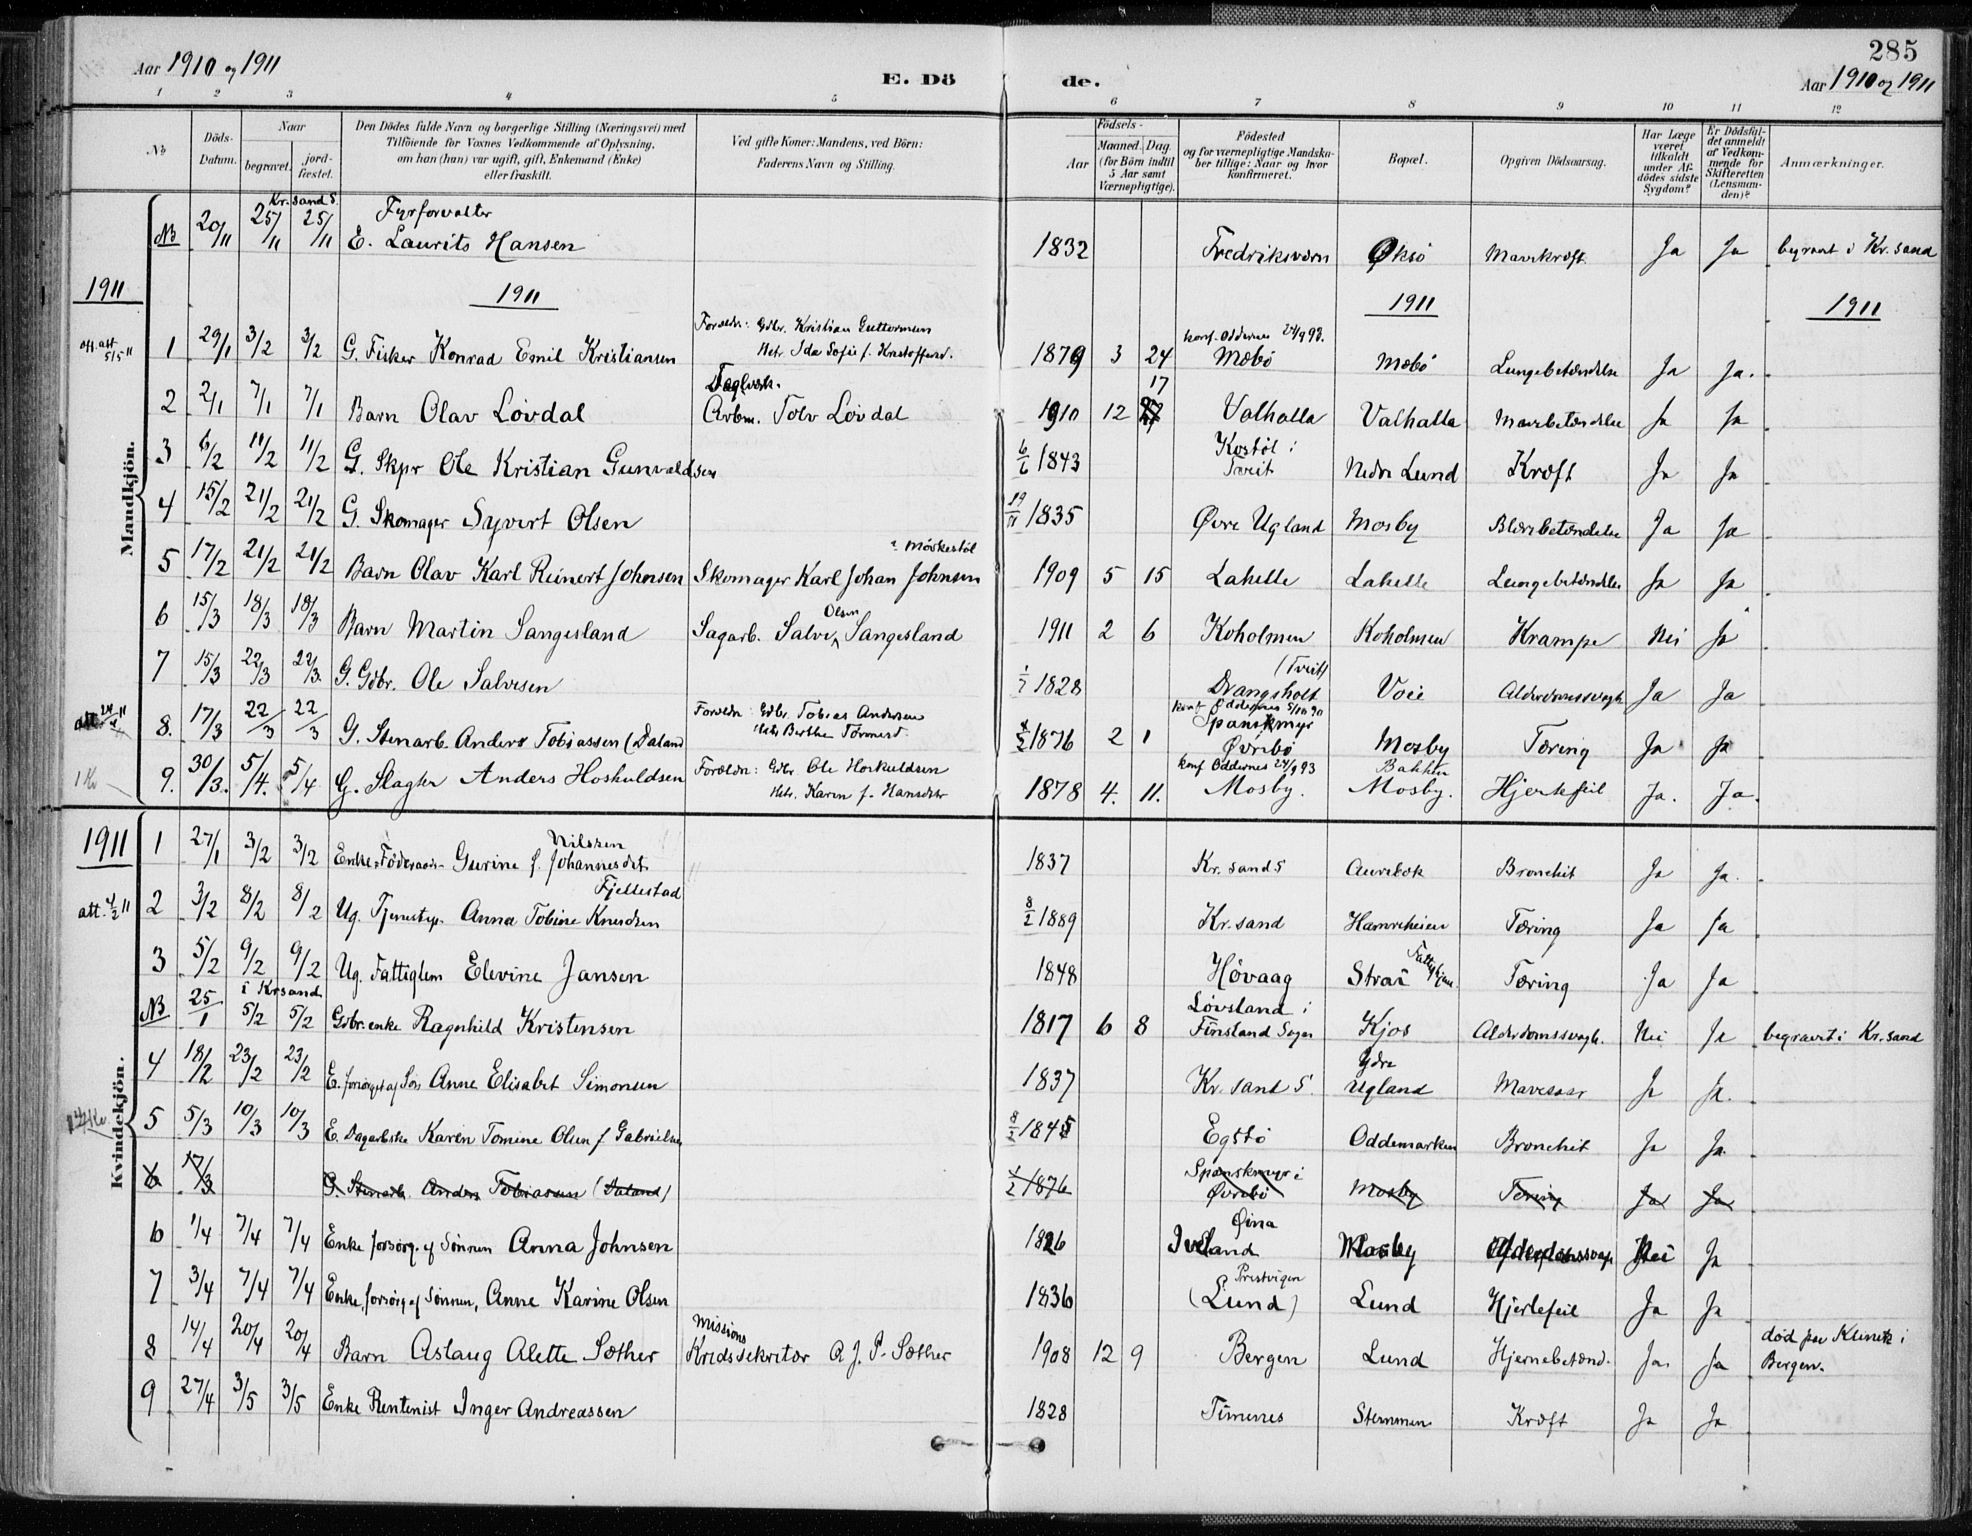 285
Aar 1910 og 1911
E. Dö
de.
Aar 1910 og 1911
1 2 3 4 5 6 7 8 9 10 11 12
No.
Döds-Datum.
Naar
begravet.
jord-fæstet.
Den Dödes fulde Navn og borgerlige Stilling (Næringsvei) med
Tilföiende for Voxnes Vedkommende af Oplysning,
om han (hun) var ugift, gift, Enkemand (Enke)
eller fraskilt.
Ved gifte Koner: Mandens, ved Börn:
Faderens Navn og Stilling.
Födsels-
Aar
Maaned. Dag
(for Börn indtil
5 Aar samt
Værnepligtige).
Födested
og for værnepligtige Mandska-
ber tillige: Naar og hvor
konfirmeret.
Bopæl.
Opgiven Dödsaarsag.
Har Læge
været
tilkaldt
under Af-
dödes sidste
Sygdom?
Er Dödsfal-
det anmeldt
af Vedkom-
mende for
Skifteretten
(Lensman-
den)?
Anmærkninger.
Mandkjön.
Kr.sand S. Fyrforvalter
NB 20/11 25/11 25/11 E. Laurits Hansen 1832 Fredriksværn Øksö Mavekræft Ja Ja begravt i Kr.sand
1911 1911 1911 1911
Foreldr: Gdbr. Kristian Guttormsen konf. Oddernes 24/9 93.
1 29/1 3/2 3/2 G. Fisker Konrad Emil Kristiansen Htr. Ida Sofie f. Kristoffersd. 1879 3 24 Mæbö Mæbö Lungebetændelse Ja Ja.
17
2 2/1 7/1 7/1 Barn Olav Lövdal Arbm. Tolv Lövdal 1910 12 Valhalla Valhalla Mavebetændelse Ja Ja
Kostöl i
3 6/2 11/2 11/2 G. Skpr Ole Kristian Gunvaldsen 6/6 1843 Tveit Nedre Lund Kræft Ja Ja
4 15/2 21/2 21/2 G. Skomager Syvert Olsen 19/11 1835 Øvre Ugland Mosby Blærebetændelse Ja Ja
5 17/2 21/2 21/2 Barn Olav Karl Reinert Johnsen Skomager Karl Johan Johnsen 1909 5 15 Lahelle Lahelle Lungebetændelse Ja Ja
Olsen
6 15/3 18/3 18/3 Barn Martin Sangesland Sagarb. Salve Sangesland 1911 2 6 Koholmen Koholmen Krampe Nei Ja
(Tveit)
7 15/3 22/3 22/3 G. Gdbr. Ole Salvesen 1/7 1828 Drangsholt Voie Alderdomssvagh Ja Ja
Foreldr: Gdbr. Tobias Andersen Spanskmyr
8. 17/3 22/3 22/3 G. Stenarb. Anders Tobiassen (Daland 1876 2 1 Øvrebö Mosby Tæring Ja Ja
konf Oddernes 24/9 93 Bakken
1 Kr 9. 30/3. 5/4. 5/4 G. Slagter Anders Hoskuldsen Foreldr: Gdbr Ole Hoskuldsen Htr. Karen f. Hansdtr 1878 4. 11. Mosby. Mosby. Hjertefeil Ja. Ja.
Kvindekjön.
1911 Nilssen
1 27/1 3/2 3/2 Enke Föderaads- Gurine f. Johannesdt. 1837 Kr.sand S Aurebæk Bronchit Ja Ja.
Fjellestad
att. 4/2 11 2 3/2 8/2 8/2 Ug. Tjenestep. Anna Tobine Knudsen 8/2 1889 Kr.sand Hamreheien Tæring Ja Ja
3 5/2 9/2 9/2 Ug. Fattiglem Elevine Jansen 1848 Hövaag Strai Tæring Ja Ja
i Kr.sand Lövsland i
NB 25/1 5/2 5/2 Gdbr.enke Ragnhild Kristensen 1817 6 8 Finsland Sogn Kjos Alderdomssvagh. Nei Ja begravet i Kr.sand
Ydre
4 18/2 23/2 23/2 E. forsörget af Sön Anne Elisabet Simonsen 1837 Kr.sand S. Ugland Mavesaar Ja Ja.
5 5/3 10/3 10/3 E. Dagarbske Karen Tomine Olsen f. Gabrielsen 8/2 1845 Egstö Oddemarken Bronchit Ja Ja.
Spanskmyr i
6 17/3 G. Stenarb. Anders Tobiassen (Daland) 1/2 1876 Øvrebö Mosby Tæring Ja Ja
Øina
6 1/4 7/4 7/4 Enke forsörg. af Sönnen Anna Johnsen 1826 Iveland Mosby Alderdomssvagh Nei Ja
Prestvigen
7 3/4 7/4 7/4 Enke, forsörg af Sönnen, Anne Karine Olsen 1836 (Lund) Lund Hjertefeil Ja Ja
Missions död paa Klinik i
8 14/4 20/4 20/4 Barn Aslaug Alette Sæther Kredssekretær A. J. P. Sæther 1908 12 9 Bergen Lund Hjernebetænd. Ja Ja Bergen.
9 27/4 3/5 3/5 Enke Rentenist Inger Andreassen 1828 Timenes Stemmen Kræft Ja Ja